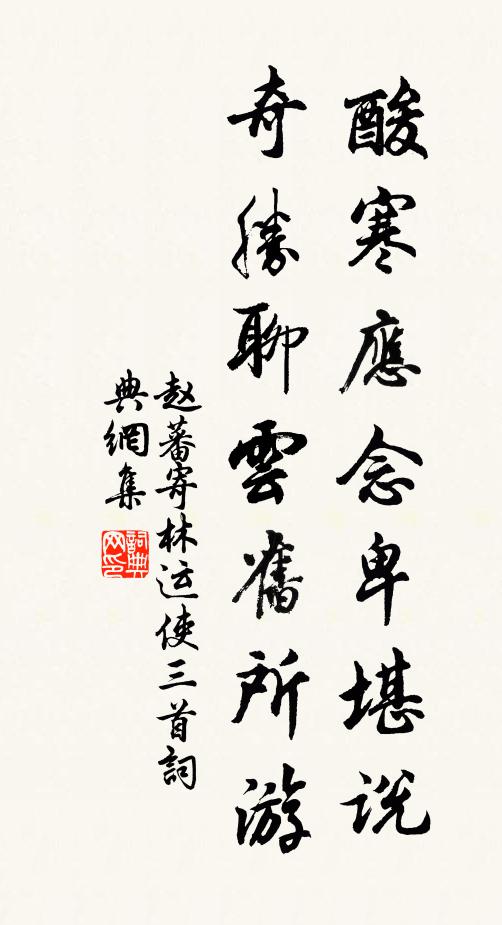 酸寒應念卑堪说
奇勝聊雲舊所游
赵蕃寄林运使三首詞
典網集
詞典网印